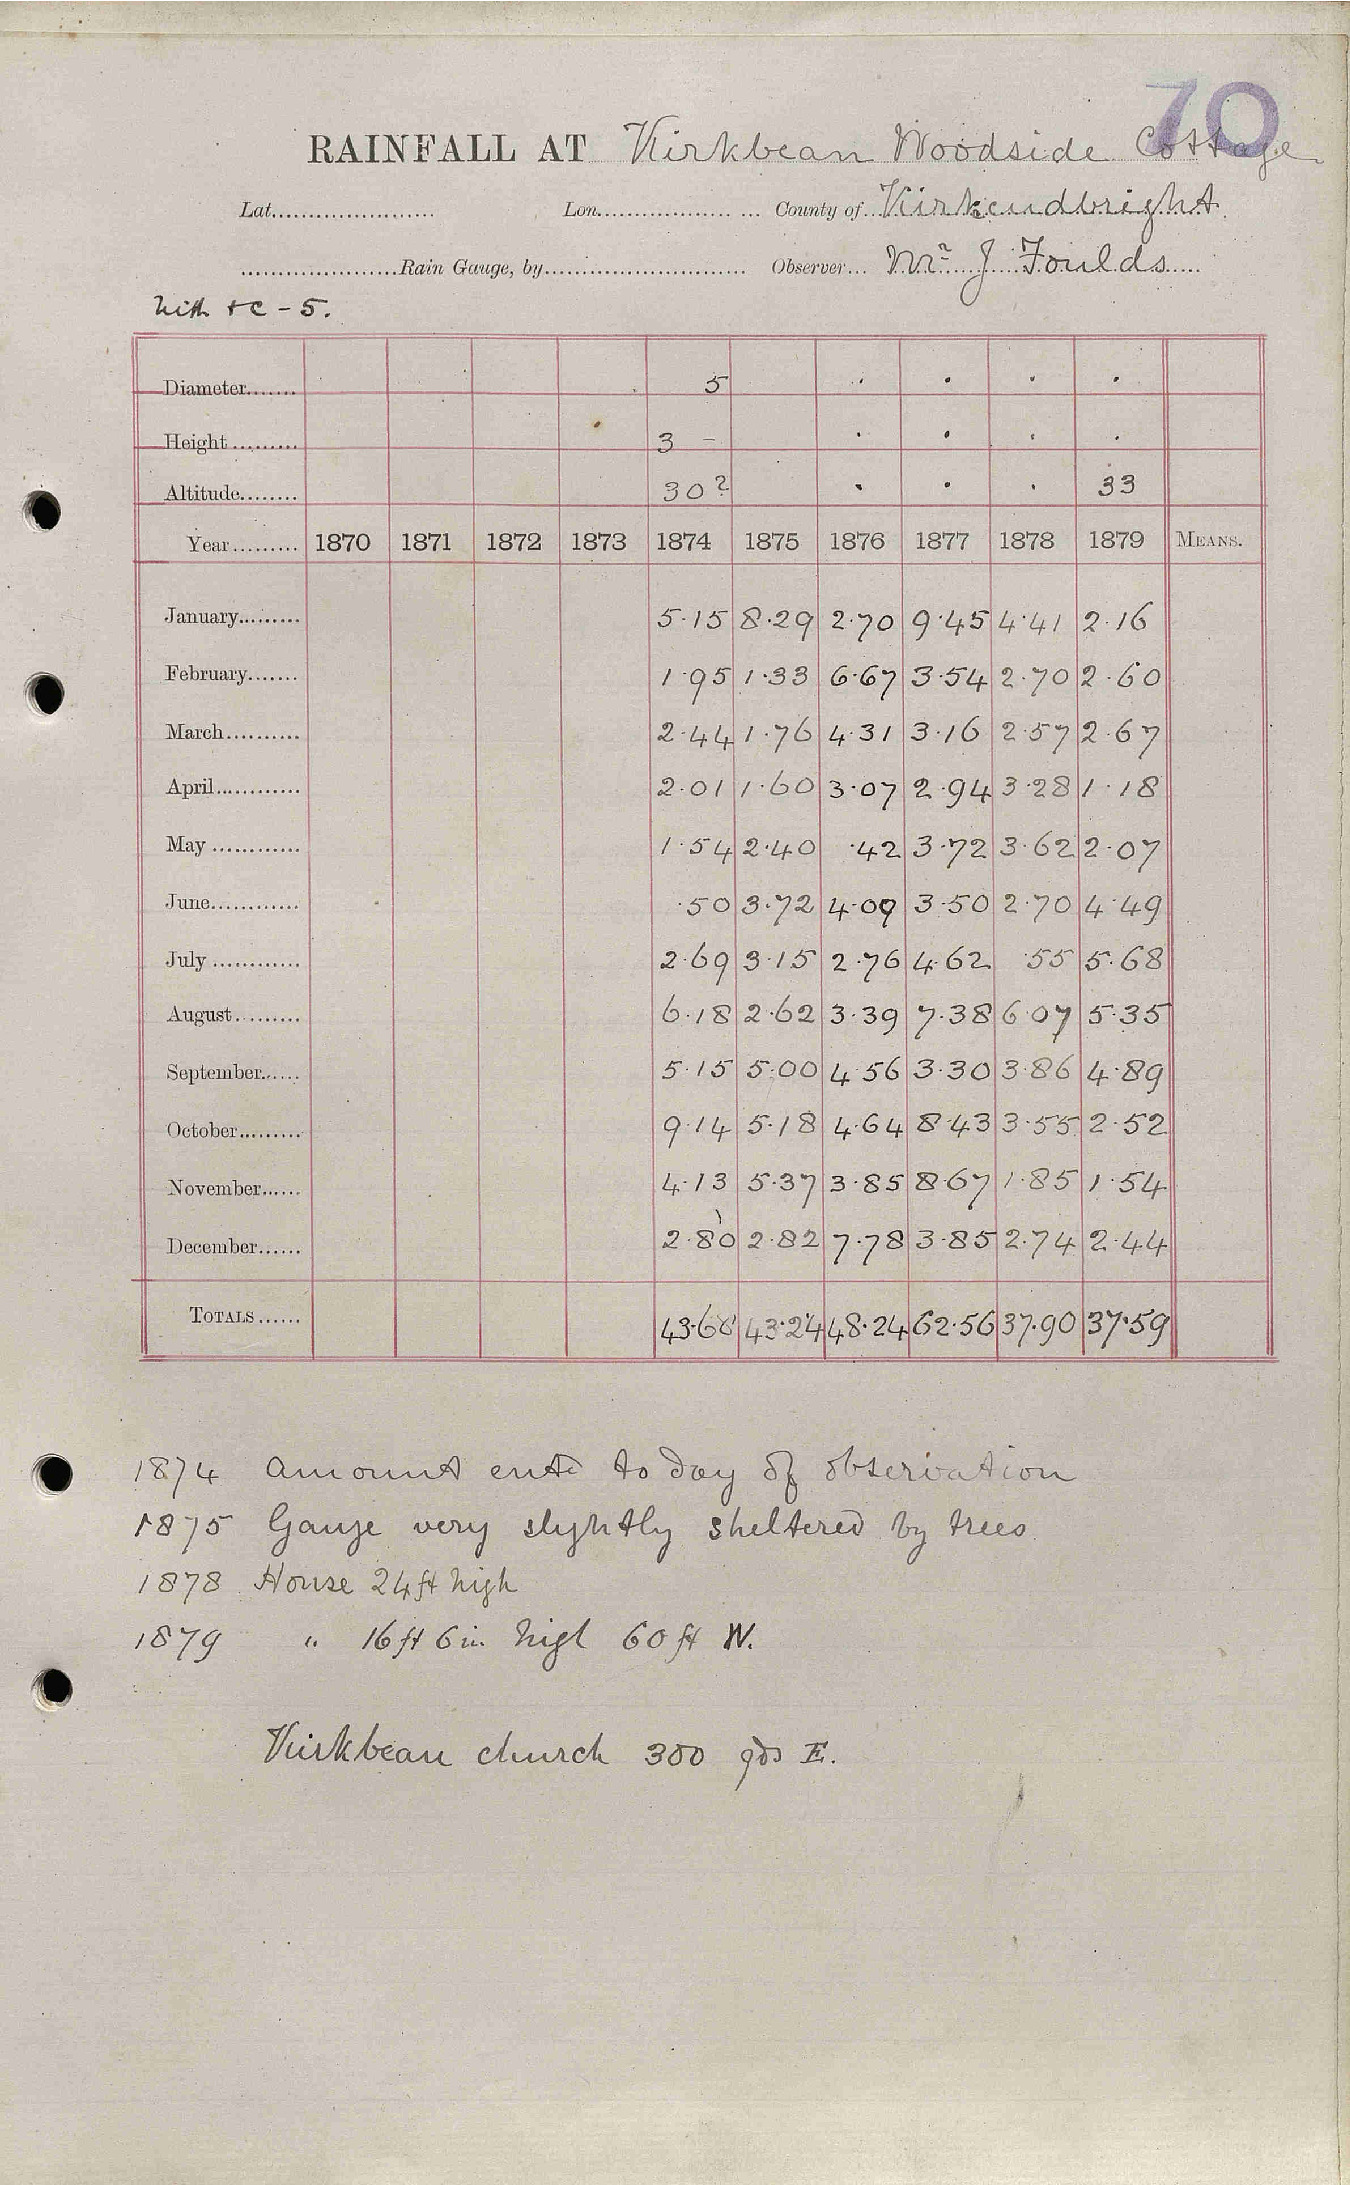 70
RAINFALL AT Kirkbean Woodside Cottage
Lat. Lon. County of Kirkcudbright
Rain Gauge, by Observer Mr J Foulds
with + C - 5.
Diameter 5 . . . .
Height 3 - . . . .
Altitude 30? . . . 33
Year 1870 1871 1872 1873 1874 1875 1876 1877 1878 1879 MEANS.
January 5.15 8.29 2.70 9.45 4.41 2.16
February 1.95 1.33 6.67 3.54 2.70 2.60
March 2.44 1.76 4.31 3.16 2.57 2.67
April 2.01 1.60 3.07 2.94 3.28 1.18
May 1.54 2.40 .42 3.72 3.62 2.07
June .50 3.72 4.09 3.50 2.70 4.49
July 2.69 3.15 2.76 4.62 .55 5.68
August 6.18 2.62 3.39 7.38 6.07 5.35
September 5.15 5.00 4.56 3.30 3.86 4.89
October 9.14 5.18 4.64 8.43 3.55 2.52
November 4.13 5.37 3.85 8.67 1.85 1.54
December 2.80 2.82 7.78 3.85 2.74 2.44
TOTALS 43.68 43.24 48.24 62.56 37.90 37.59
1874 Amount entd to day of observation
1875 Gauge very slightly sheltered by trees
1878 House 24 ft high
1879 " 16 ft 6 in high 60 ft W.
Kirkbean church 300 yds E.